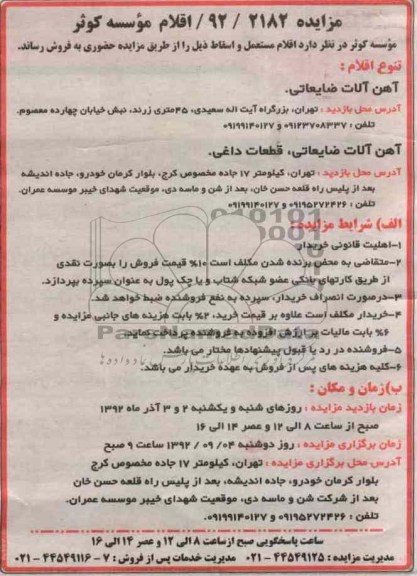 مزایده ۲۱۸۲ / ۹۲/ اقلام مؤسسه کوثر
مؤسسه کوثر در نظر دارد اقلام مستعمل و اسقاط ذیل را از طریق مزایده حضوری به فروش رساند.
تنوع اقلام :
آهن آلات ضایعاتی.
آدرس محل بازدید : تهران، بزرگراه آیت اله سعیدی، ۴۵متری زرند، نبش خیابان چهارده معصوم.
تلفن : ۰۹۱۲۳۷۰۸۳۳۷ و ۰۹۱۹۹۱۴۰۱۲۷
آهن آلات ضایعاتی، قطعات داغی.
آدرس محل بازدید : تهران، کیلومتر ۱۷ جاده مخصوص کرج، بلوار کرمان خودرو، جاده اندیشه
بعد از پلیس راه قلعه حسن خان، بعد از شن و ماسه دی، موقعیت شهدای خیبر موسسه عمران.
تلفن : ۰۹۱۹۵۲۷۲۴۲۶ و ۰۹۱۹۹۱۴۰۱۲۷
الف) شرایط مزایده :
۱-اهلیت قانونی خریدار
۲-متقاضی به محض برنده شدن مکلف است ۱۰% قیمت فروش را بصورت نقدی
از طریق کارتهای بانکی عضو شبکه شتاب و یا چک پول به عنوان سپرده بپردازد.
۳-درصورت انصراف خریدار، سپرده به نفع فروشنده ضبط خواهد شد.
۴-خریدار مکلف است علاوه بر قیمت خرید، ۲% بابت هزینه های جانبی مزایده و
۶% بابت مالیات بر ارزش افزوده به فروشنده پرداخت نماید.
۵-فروشنده در رد یا قبول پیشنهادها مختار می باشد.
۶-کلیه هزینه های پس از فروش به عهده خریدار می باشد.
ب)زمان و مکان :
زمان بازدید مزایده : روزهای شنبه و یکشنبه ۲ و ۳ آذر ماه ۱۳۹۲
صبح از ساعت ۸ الی ۱۲ و عصر ۱۴ الی ۱۶
زمان برگزاری مزایده : روز دوشنبه ۰۴/ ۰۹/ ۱۳۹۲ ساعت ۹ صبح
آدرس محل برگزاری مزایده : تهران، کیلومتر ۱۷ جاده مخصوص کرج
بلوار کرمان خودرو، جاده اندیشه، بعد از پلیس راه قلعه حسن خان
بعد از شرکت شن و ماسه دی، موقعیت شهدای خیبر موسسه عمران.
تلفن : ۰۹۱۹۵۲۷۲۴۲۶ و ۰۹۱۹۹۱۴۰۱۲۷.
ساعت پاسخگویی صبح ازساعت ۸ الی ۱۲ و عصر ۱۴ الی ۱۶
مدیریت مزایده : ۴۴۵۴۹۱۲۵ - ۰۲۱ مدیریت خدمات پس از فروش : ۷ - ۴۴۵۴۹۱۱۶ - ۰۲۱